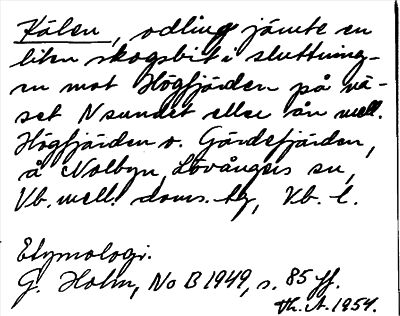 Kälen, odling jämte en
liten skogsbit i sluttning-
en mot Högfjärden på nä-
set N sundet eller ån mell.
Högfjärden o. Gärdefjärden,
å Nolbyn, Lövångers sn,
Vb. mell. doms. tg, Vb. l.
Etymologi.
G. Holm, No B 1949, s. 85 ff.
Th. A. 1954.